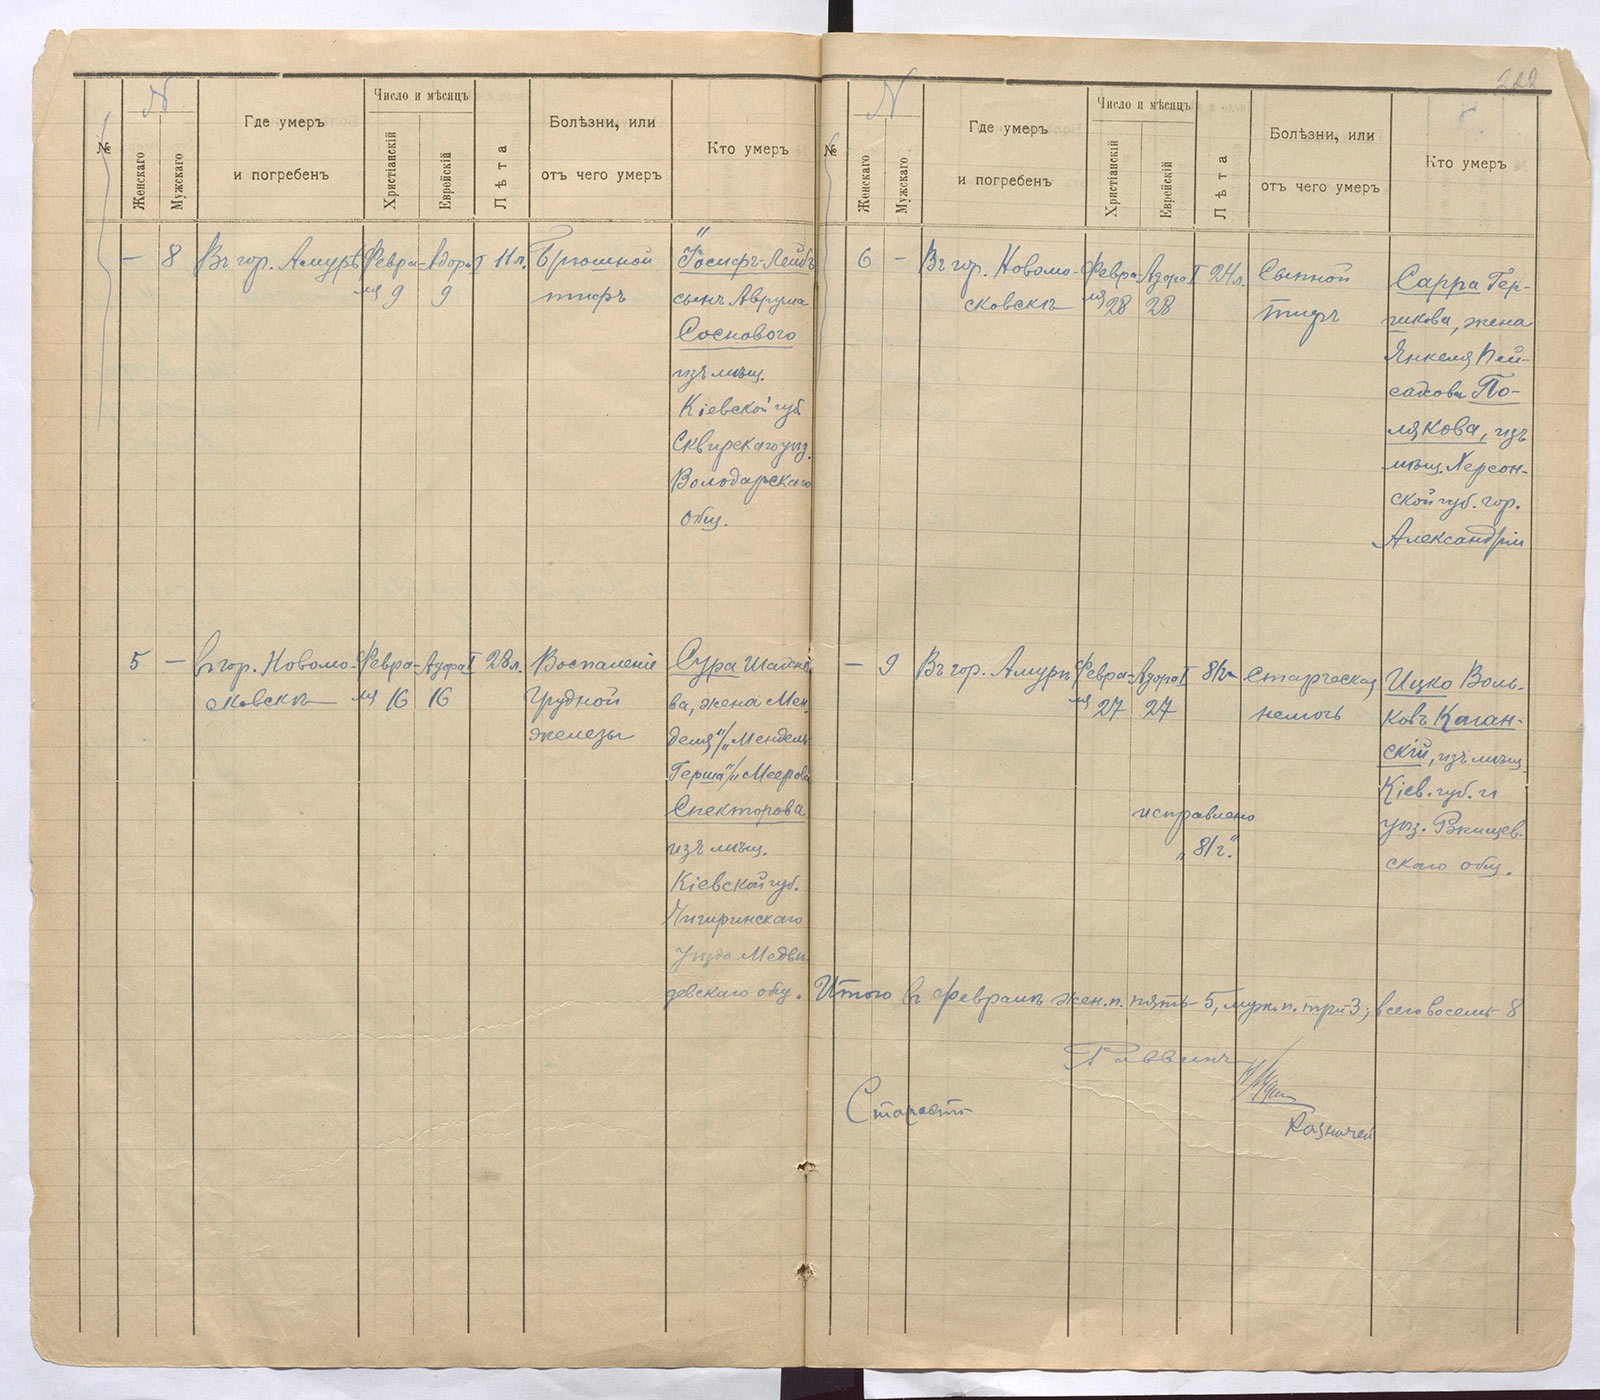 222
№
N
Женскаго
Мужскаго
Где умеръ
и погребенъ
Число и мѣсяцъ
Христіанскій
Еврейскій
Лѣта
Болѣзни, или
отъ чего умеръ
Кто умеръ
— 8 Въ гор. Амурѣ Февра- Адора I 11 л. Брюшной
ля 9 9 тифъ
Іосифъ-Лейбъ
сынъ Аврума
Соснового
изъ мѣщ.
Кіевской губ.
Сквирскаго уѣз.
Володарскаго
общ.
5 — Въ гор. Новомо- Февра- Адора I 28 л. Воспаленіе
сковскѣ ля 16 16 грудной
железы
Сура
ва, жена Мен-
деля "/" Мендель
Герша "/" Меерова
Спекторова
изъ мѣщ.
Кіевской губ.
Чигиринскаго
уѣзда Медвѣ
девскаго общ.
№
N
Женскаго
Мужскаго
Где умеръ
и погребенъ
Число и мѣсяцъ
Христіанскій
Еврейскій
Лѣта
Болѣзни, или
отъ чего умеръ
Кто умеръ
6 — Въ гор. Новомо- Февра- Адора I 24 л. Сыпной
сковскѣ ля 28 28 тифъ
Сарра Гер-
шкова, жена
Янкеля Пей-
сахова По-
лякова, изъ
мѣщ. Херсон-
ской губ. гор.
Александріи
— 9 Въ гор. Амурѣ Февра- Адора I 81 г. Старческая
ля 27 27 немочь
Ицко Воль-
ковъ Каган-
скій, изъ мѣщ.
Кіев. губ. и
уѣз. Ржищев-
скаго общ.
исправлено
"81 г."
Итого въ февралѣ жен. п. пять - 5, муж. п. три 3; всего восемь - 8
Раввинъ
Староста
Казначей